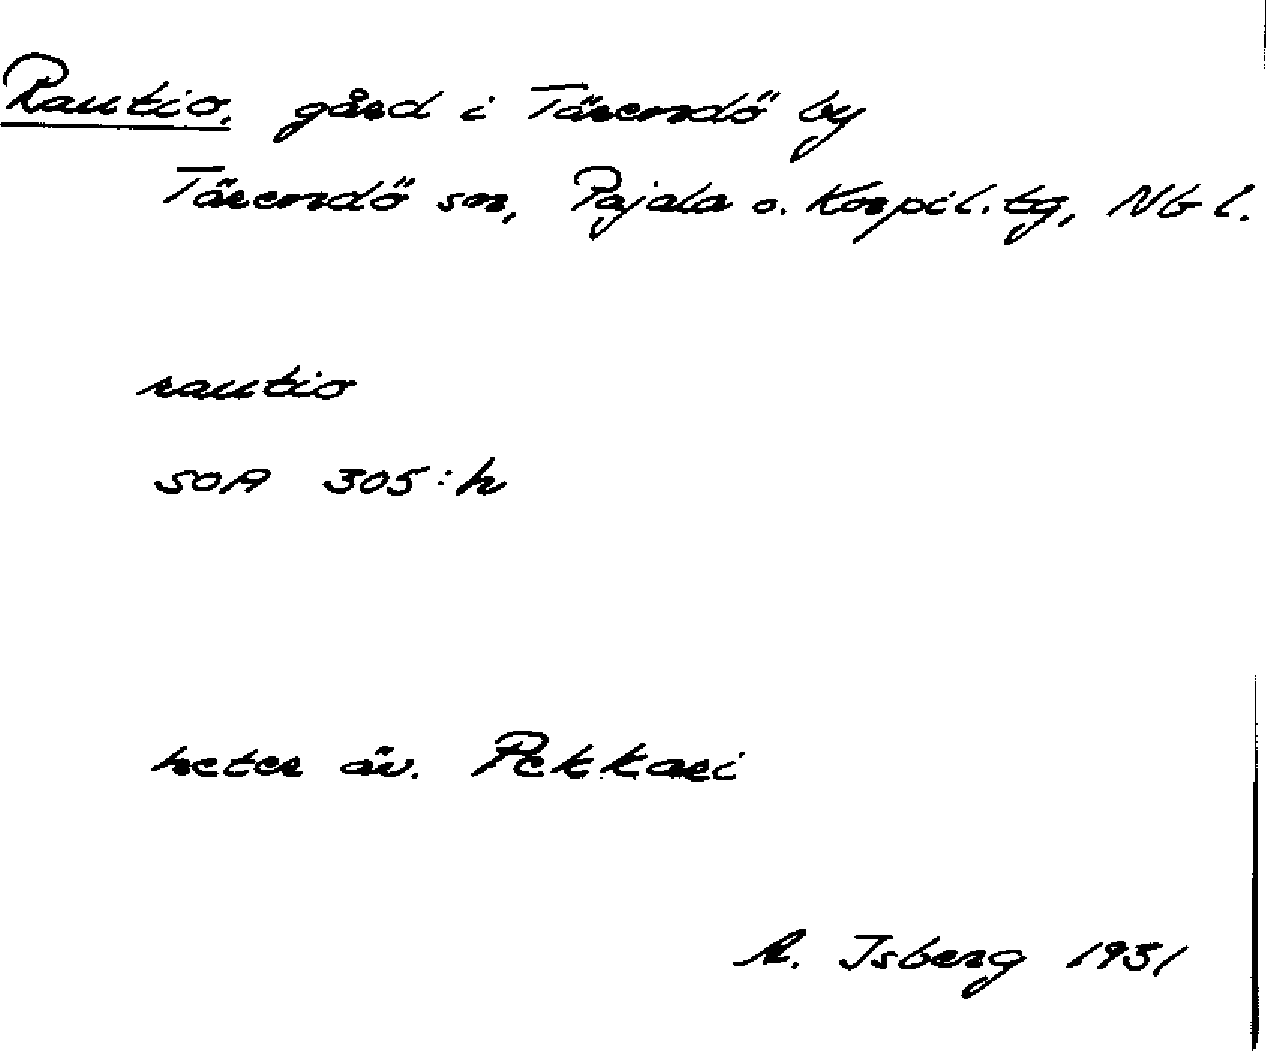 Rautio, gård i Tärendö by
Tärendö sn, Pajala o. Korpil. tg, Nb l.
rautio
SOA 305:h
heter äv. Pekkari
A. Isberg 1931